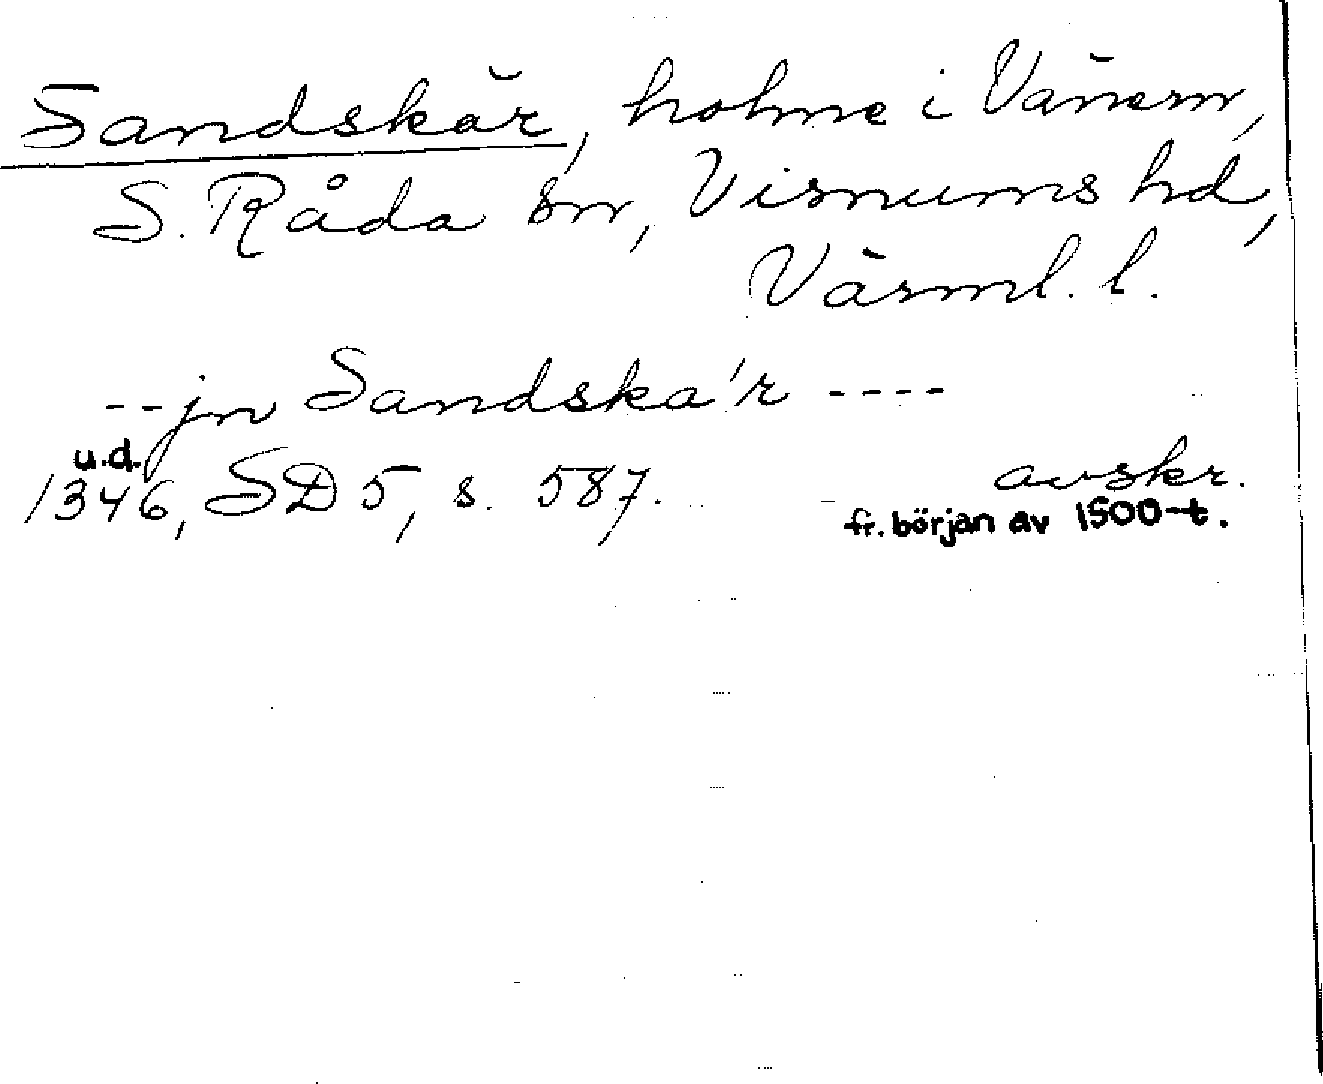 Sandskär, holme i Vänern,
S. Råda sn, Visnums hd,
Värml. l.
--jn Sandska'r ----
u.d.
1346, SD 5, s. 587. avskr.
fr. början av 1500-t.